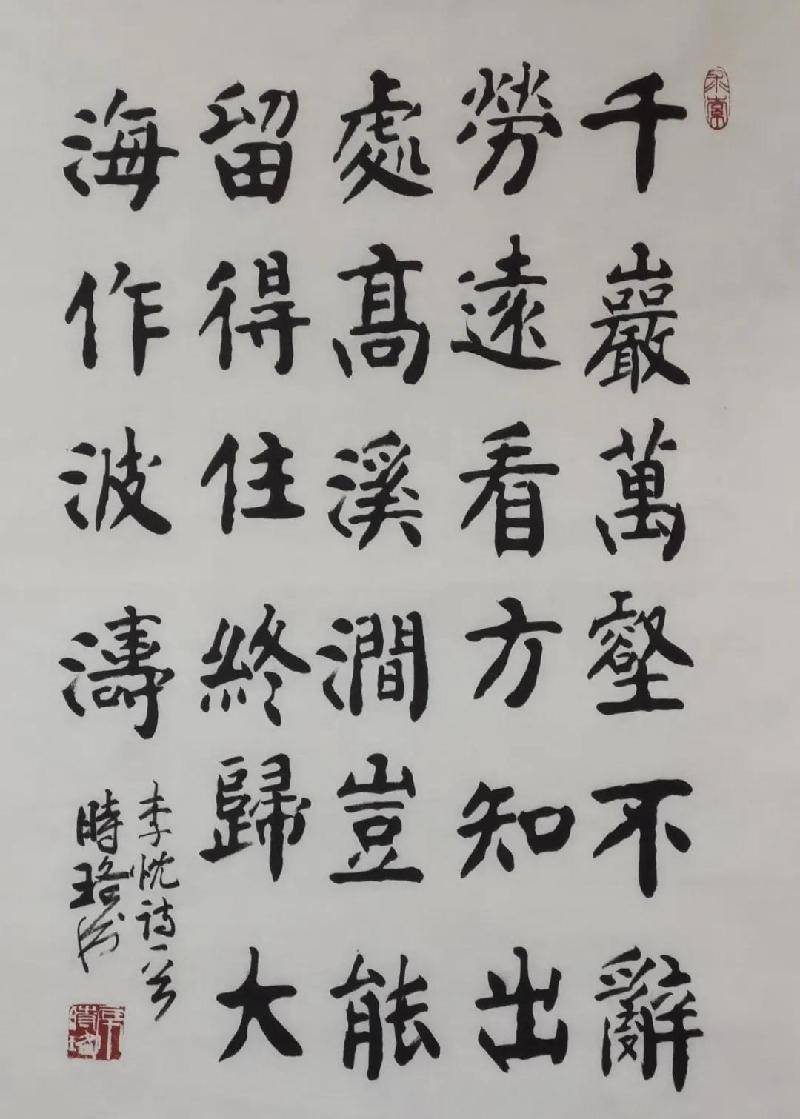 千巖萬壑不辭
勞遠看方知出
處高溪澗豈能
留得住終歸大
海作波濤
李忱詩一首
時珞書